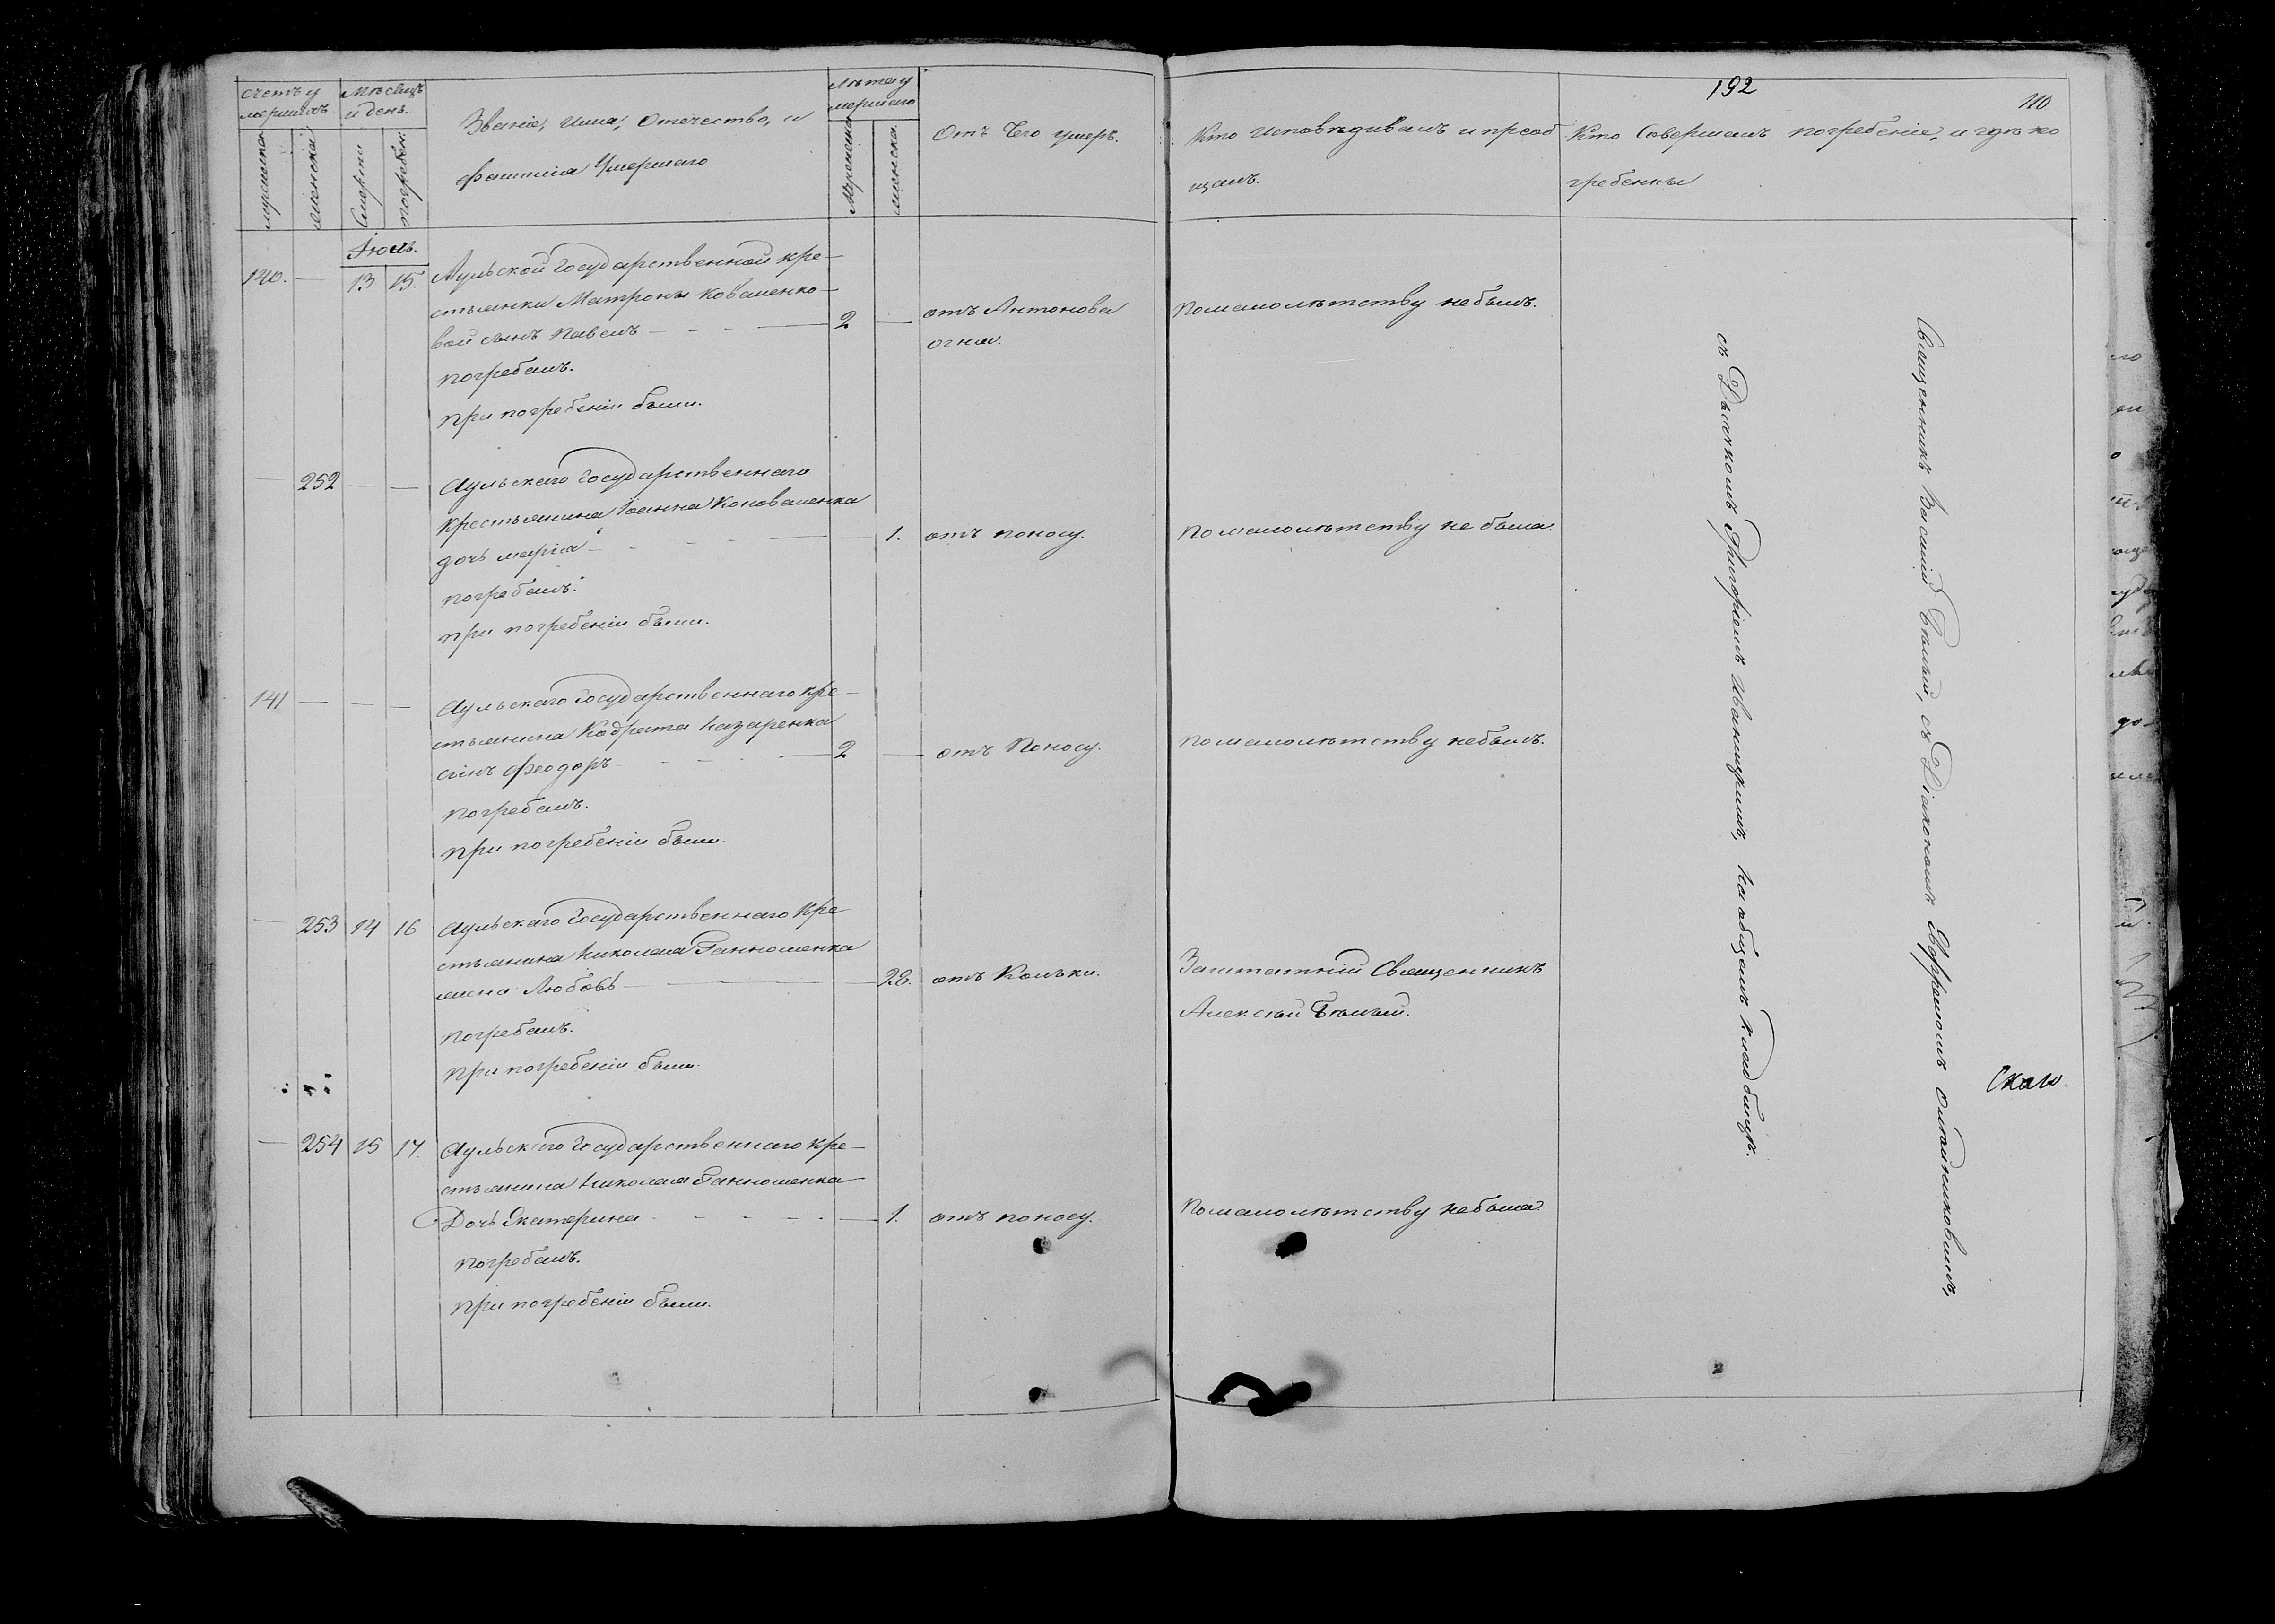 Счетъ у
мершихъ
Мѣсяцъ
и день.
Званіе, Имя, Отечество, и
фамилія Умершаго
Лѣта у
мершаго
Отъ Чего умеръ.
Кто исповѣдивалъ и преоб
щалъ.
Кто Совершалъ погребеніе, и гдѣ по
гребенны
192
110
мужеска
женска
Смерти
погребен:
Мужеска
женска
Іюль.
140. — 13 15. Аульской Государственной кре-
стьянки Матроны Коваленко-
вой сынъ Павелъ — 2 — отъ Антонова
огня.
Помалолѣтству небылъ.
погребалъ.
при погребеніи были.
— 252 — — Аульскаго Государственнаго
крестьянина Іоанна Коноваленка
дочь марія — 1. отъ поносу. Помалолѣтству не была.
погребалъ.
при погребеніи были.
141 — — — Аульскаго Государственнаго кре-
стьянина Кодрата Назаренка
сынъ Феодоръ — 2 — отъ Поносу. Помалолѣтству небылъ.
погребалъ.
при погребеніи были.
— 253 14 16 Аульскаго Государственнаго Кре
стьянина Николая
жена Любовь — 28. отъ Кольки. Заштатній Священникъ
Алексѣй Бѣлый.
погребалъ.
При погребеніи были.
— 254 15 17. Аульскаго Государственнаго кре-
стьянина Николая
Дочь Екатерина — 1. отъ поносу. Помалолѣтству небыла.
погребалъ.
при погребеніи были.
Священникъ Василій Бѣлый, съ Діакономъ Ефремомъ
съ Дьячкомъ Григоріемъ Иваницкимъ, на общемъ кладбищѣ.
Скаго